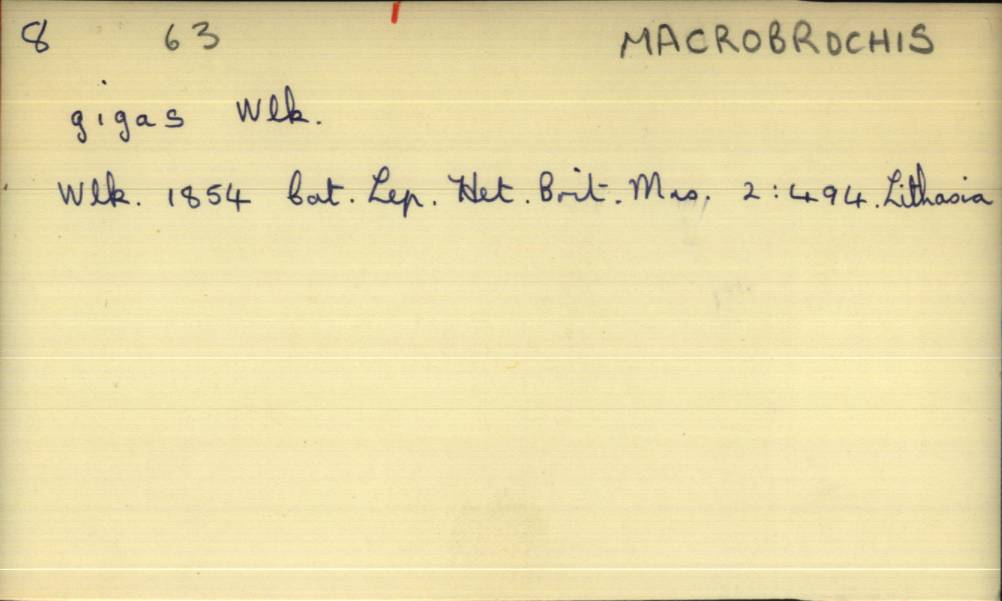 8 63 MACROBROCHIS
gigas Wlk.
Wlk. 1854 Cat. Lep. Het. Brit. Mus. 2:494. Lithosia